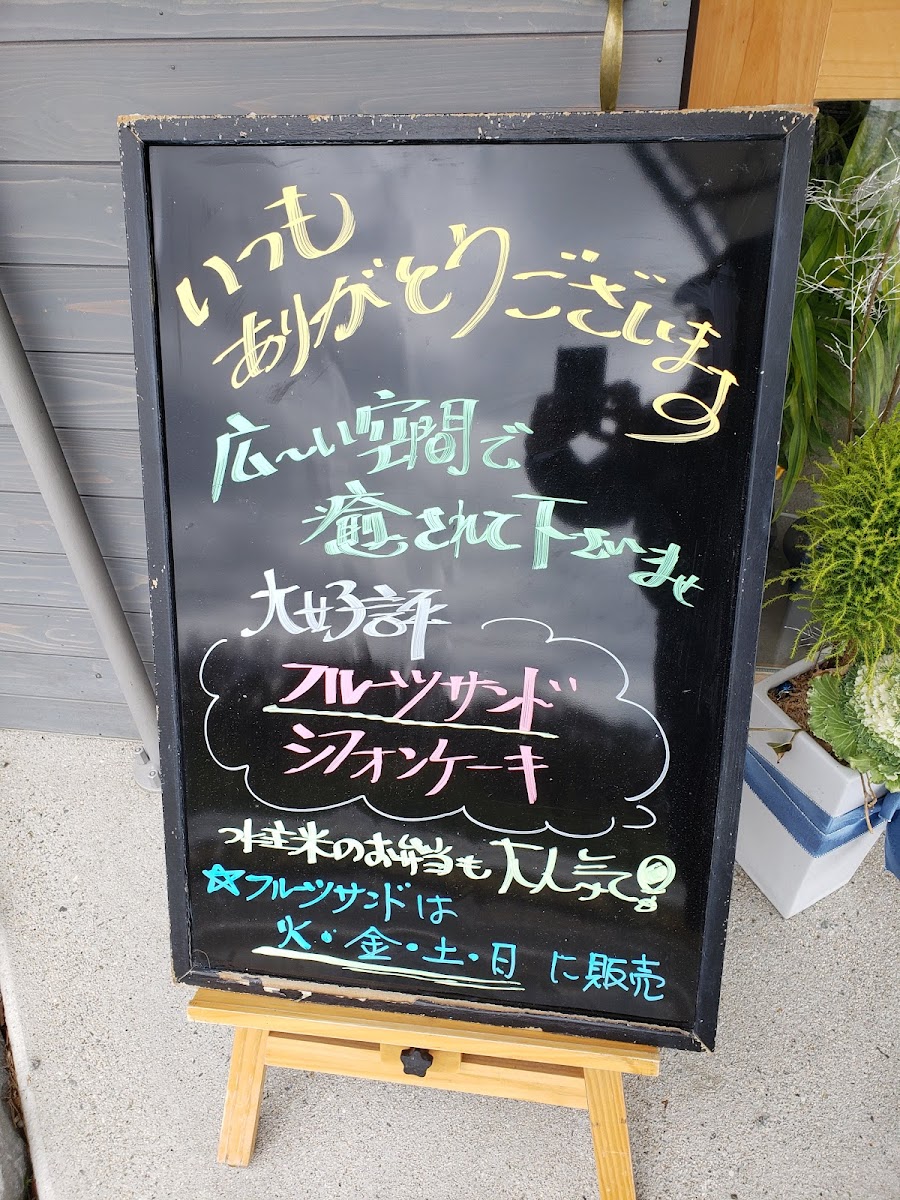 いつも
ありがとうございます
広〜い空間で
癒されて下さいませ
大好評
フルーツサンド
シフォンケーキ
米のお弁当も大人気です
☆フルーツサンドは
火・金・土・日に販売